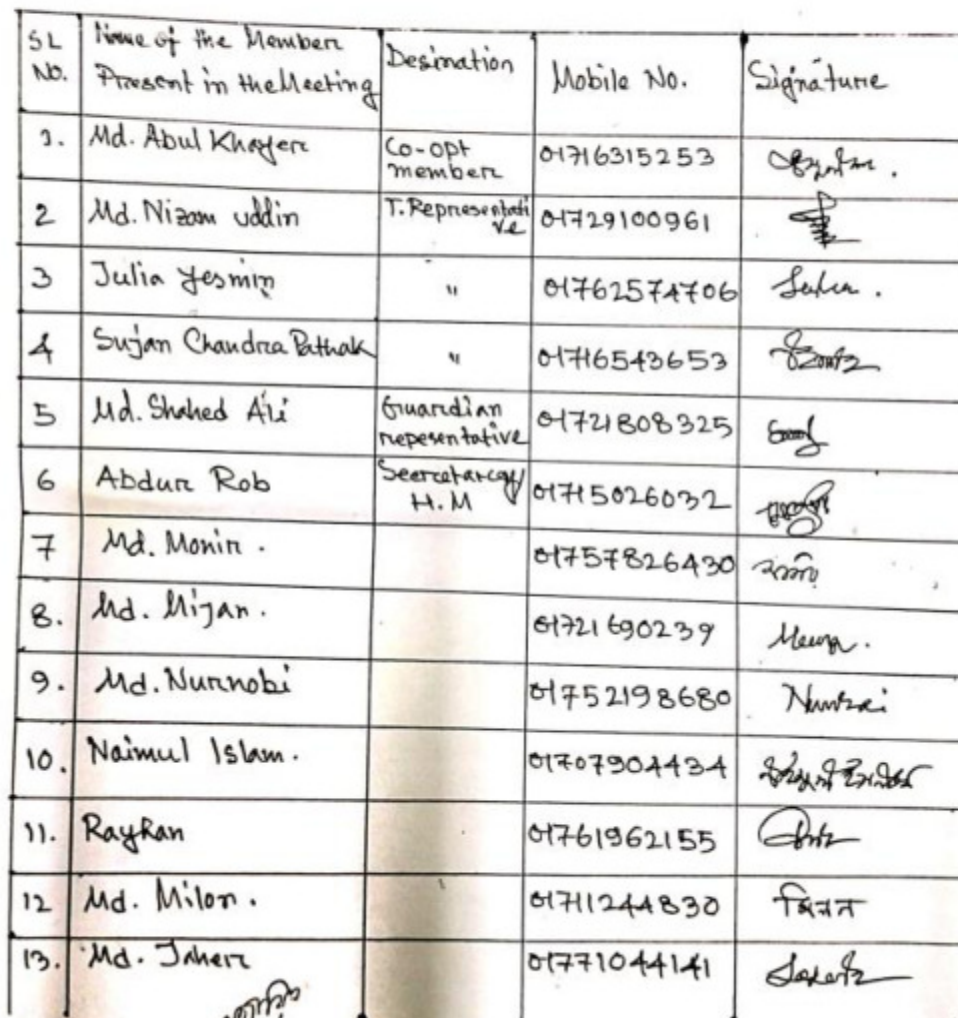 SL NO. Name of the Member Present in the Meeting Desination Mobile No. Signature
1. Md. Abul Khayer Co-opt member 01716315253
2 Md. Nizam uddin T. Representative 01729100961
3 Julia Yesmin " 01762574706
4 Sujan Chandra Pathak " 01716543653
5 Md. Shahed Ali Guardian repesentative 01721808325
6 Abdur Rob Secretary/ H.M 01715026032
7 Md. Monir. 01757826430
8. Md. Mijan. 01721690239
9. Md. Nurnobi 01752198680
10. Naimul Islam. 01707904434
11. Rayhan 01761962155
12 Md. Milon. 01711244830 মিলন
13. Md. Taher 01771044141